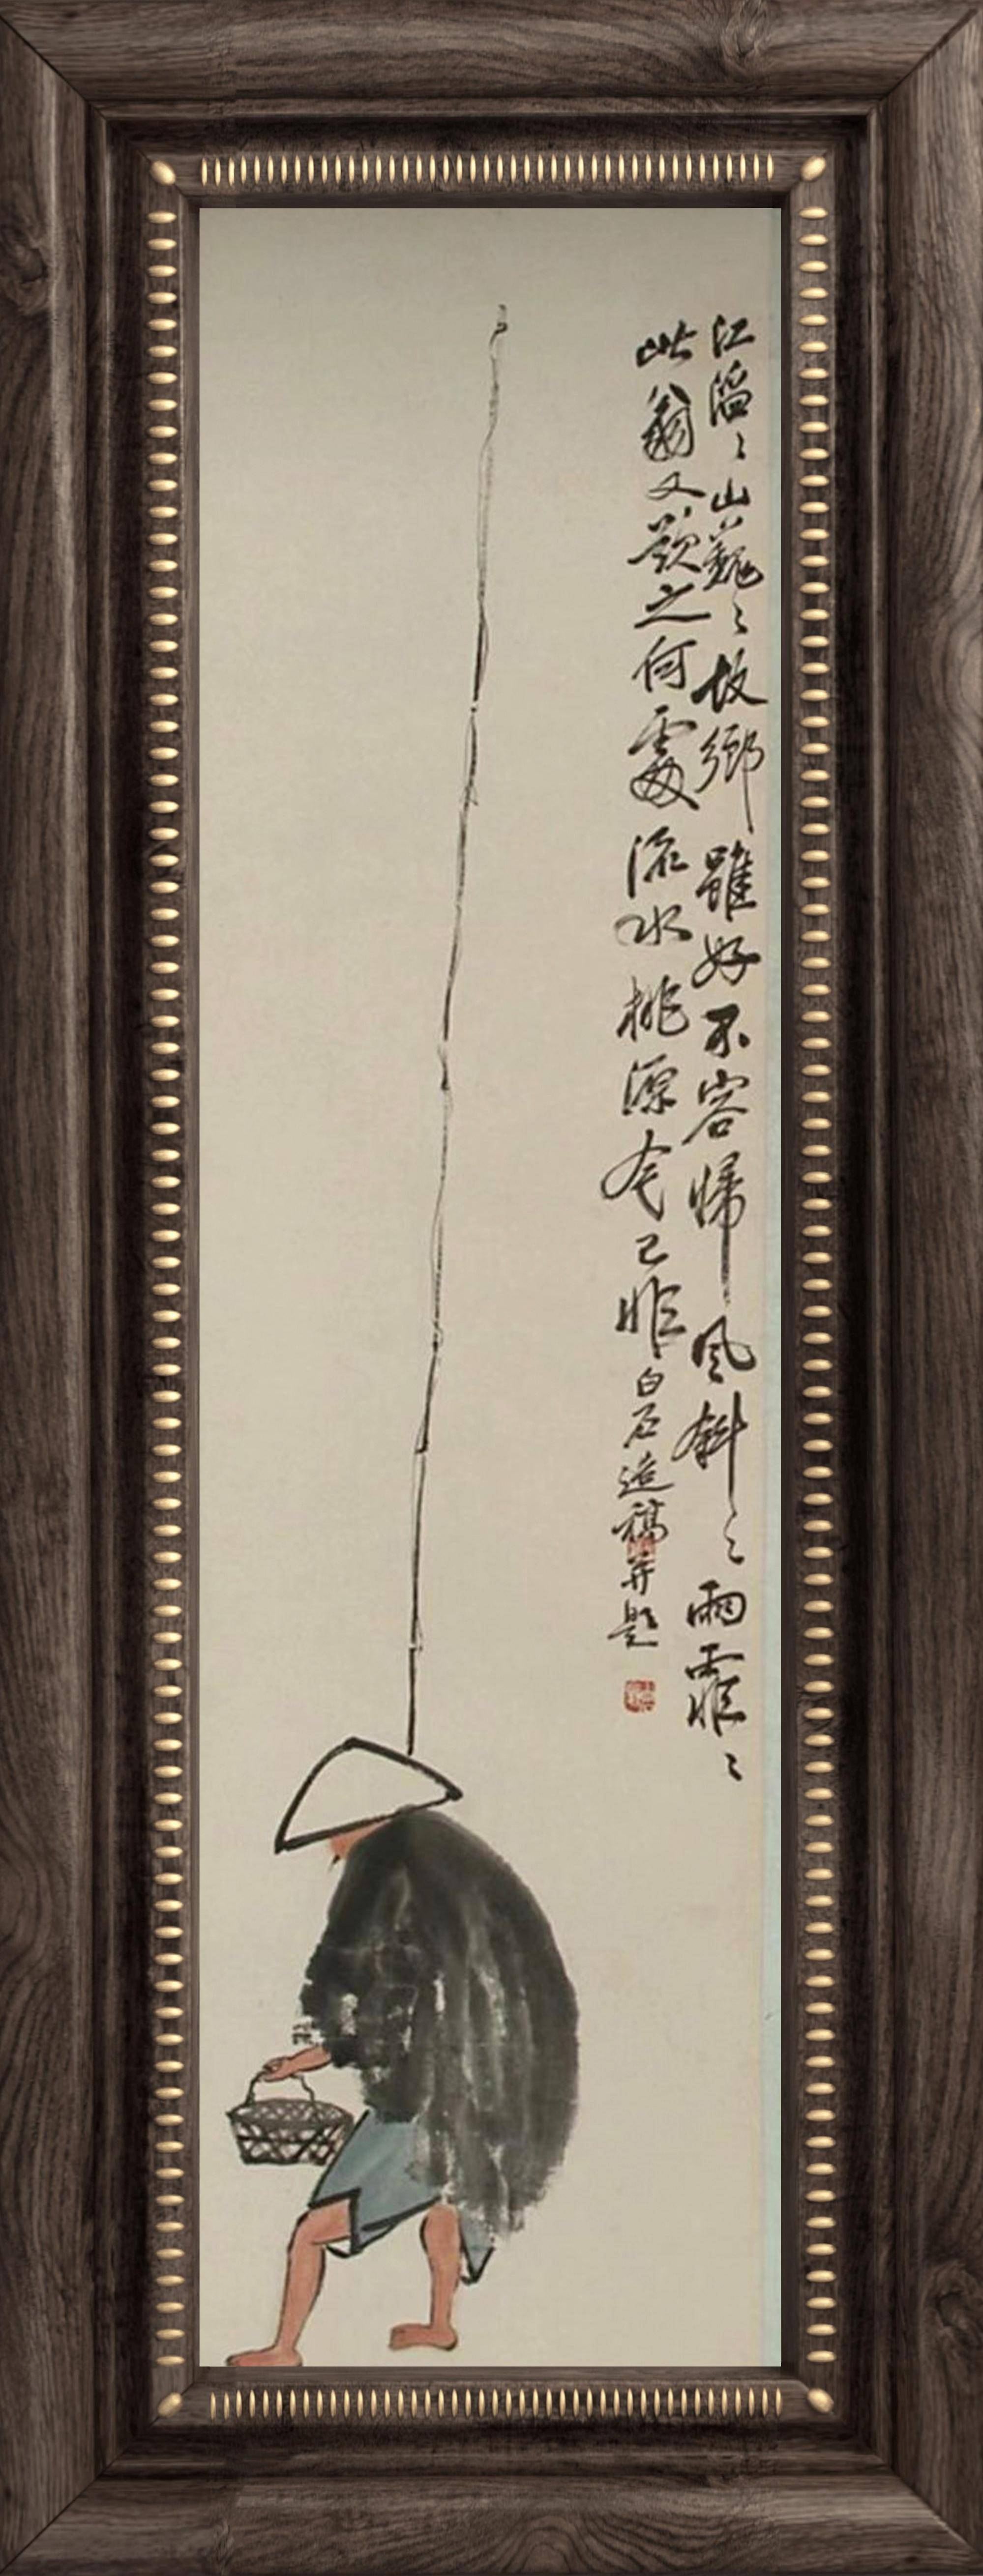 江滔〻山巍〻故鄉雖好不容歸風斜〻雨霏〻
此翁又欲之何處流水桃源今已非白石造稿并題